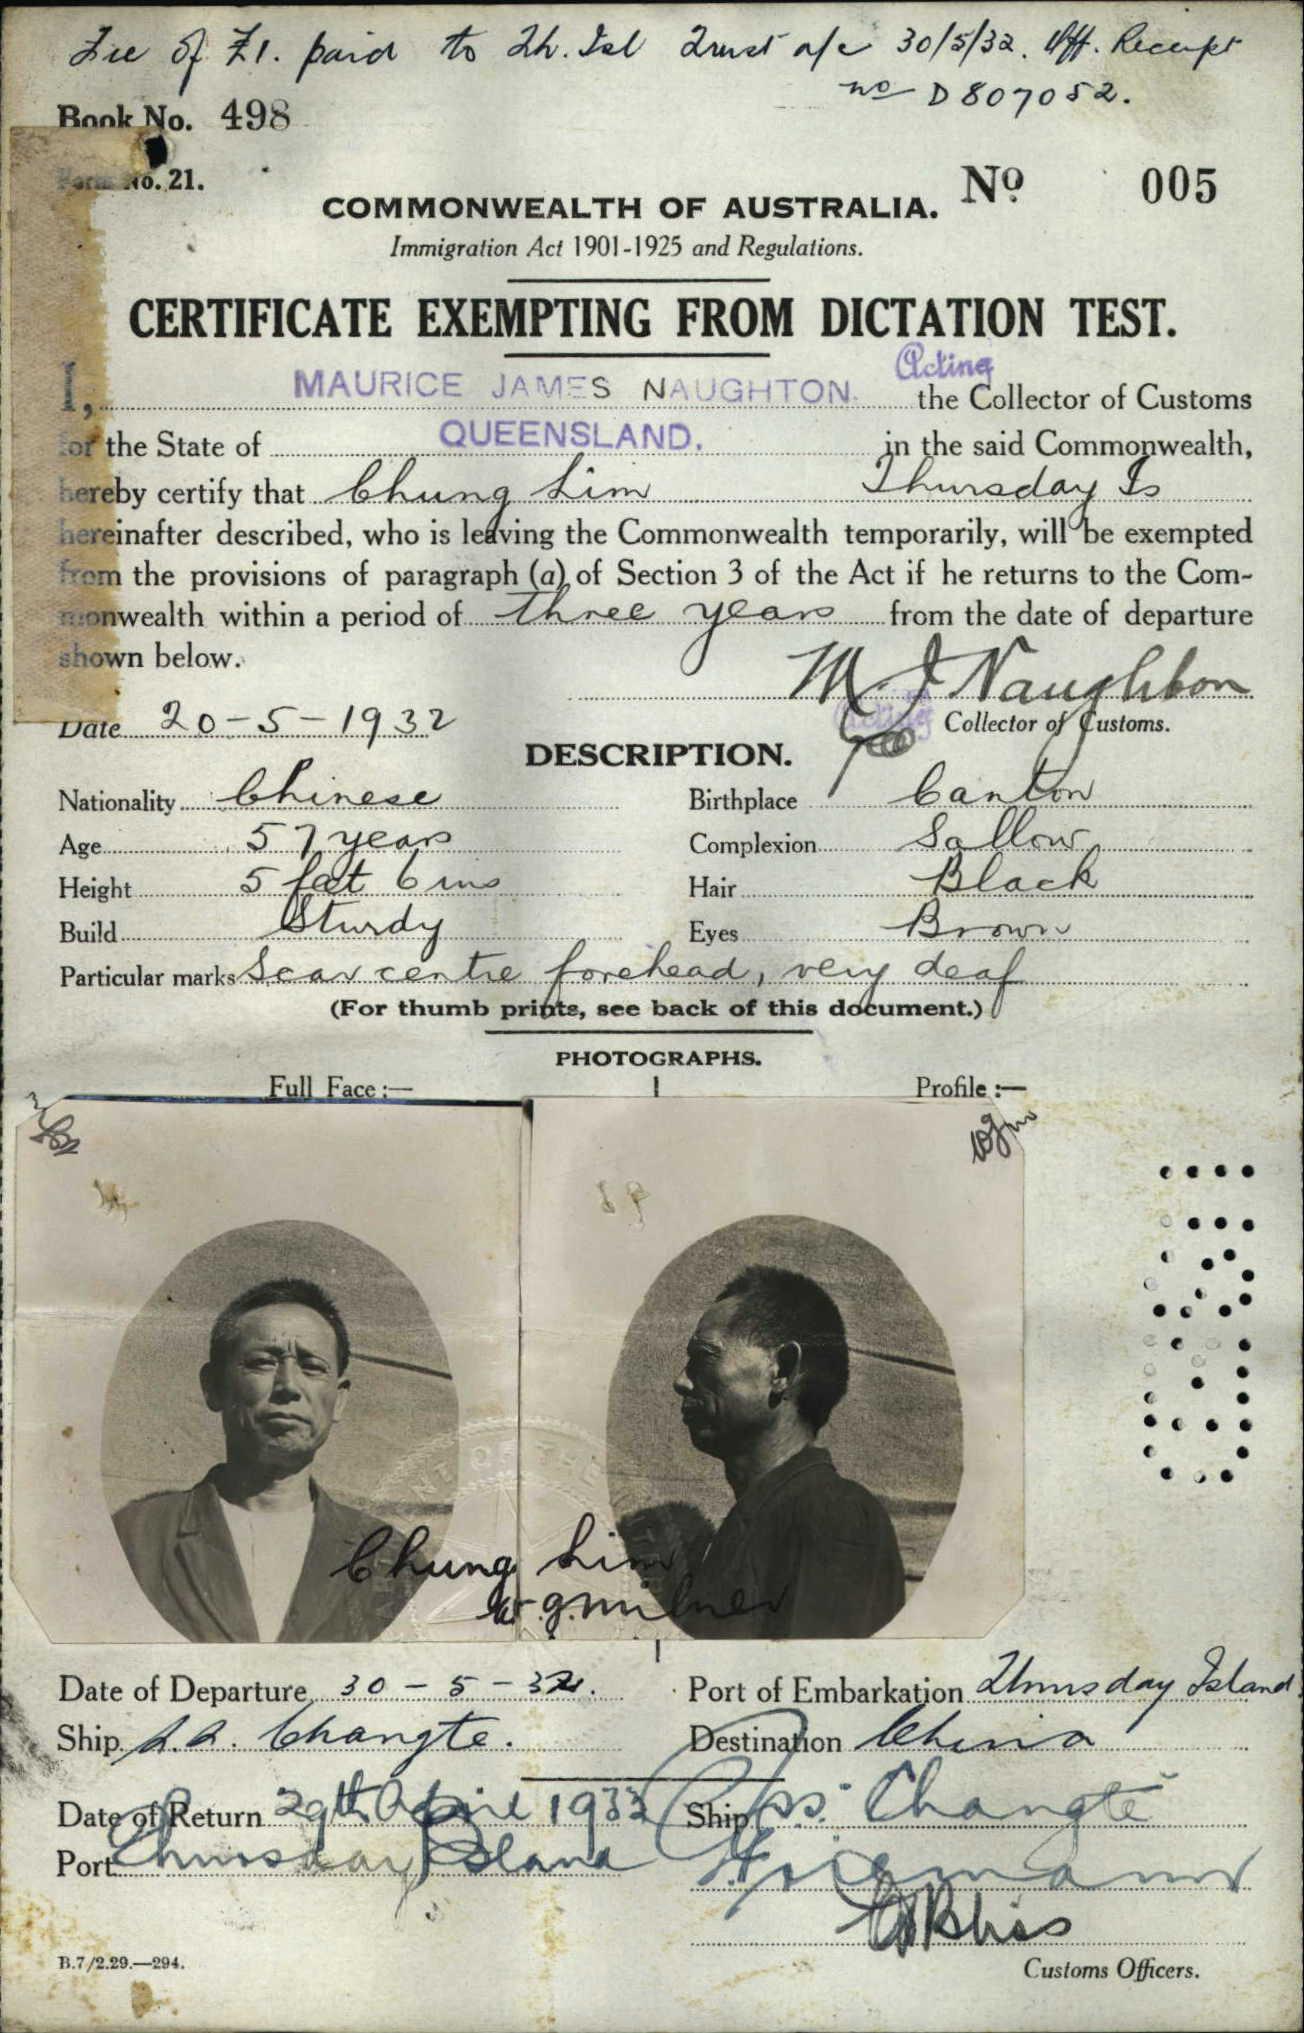 Fee of £1. paid to Th. Isl Trust a/c 30/5/32. Off. Receipt
no D 807052.
Book No. 498
Form No. 21.
No 005
COMMONWEALTH OF AUSTRALIA.
Immigration Act 1901-1925 and Regulations.
CERTIFICATE EXEMPTING FROM DICTATION TEST.
Acting
I, MAURICE JAMES NAUGHTON. the Collector of Customs
for the State of QUEENSLAND. in the said Commonwealth,
hereby certify that Chung Lim Thursday Is
hereinafter described, who is leaving the Commonwealth temporarily, will be exempted
from the provisions of paragraph (a) of Section 3 of the Act if he returns to the Com-
monwealth within a period of three years from the date of departure
shown below.
M J Naughton
Acting Collector of Customs.
Date 20-5-1932
DESCRIPTION.
Nationality Chinese Birthplace Canton
Age 57 years Complexion Sallow
Height 5 feet 6 ins Hair Black
Build Sturdy Eyes Brown
Particular marks Scar centre forehead, very deaf
(For thumb prints, see back of this document.)
PHOTOGRAPHS.
Full Face :— Profile :—
Chung Lim
W.G. Milner
Date of Departure 30-5-32. Port of Embarkation Thursday Island
Ship S.S. Changte. Destination China
Date of Return 29th April 1933 Ship ss. Changte
Port Thursday Island
Customs Officers.
B.7/2.29.—294.